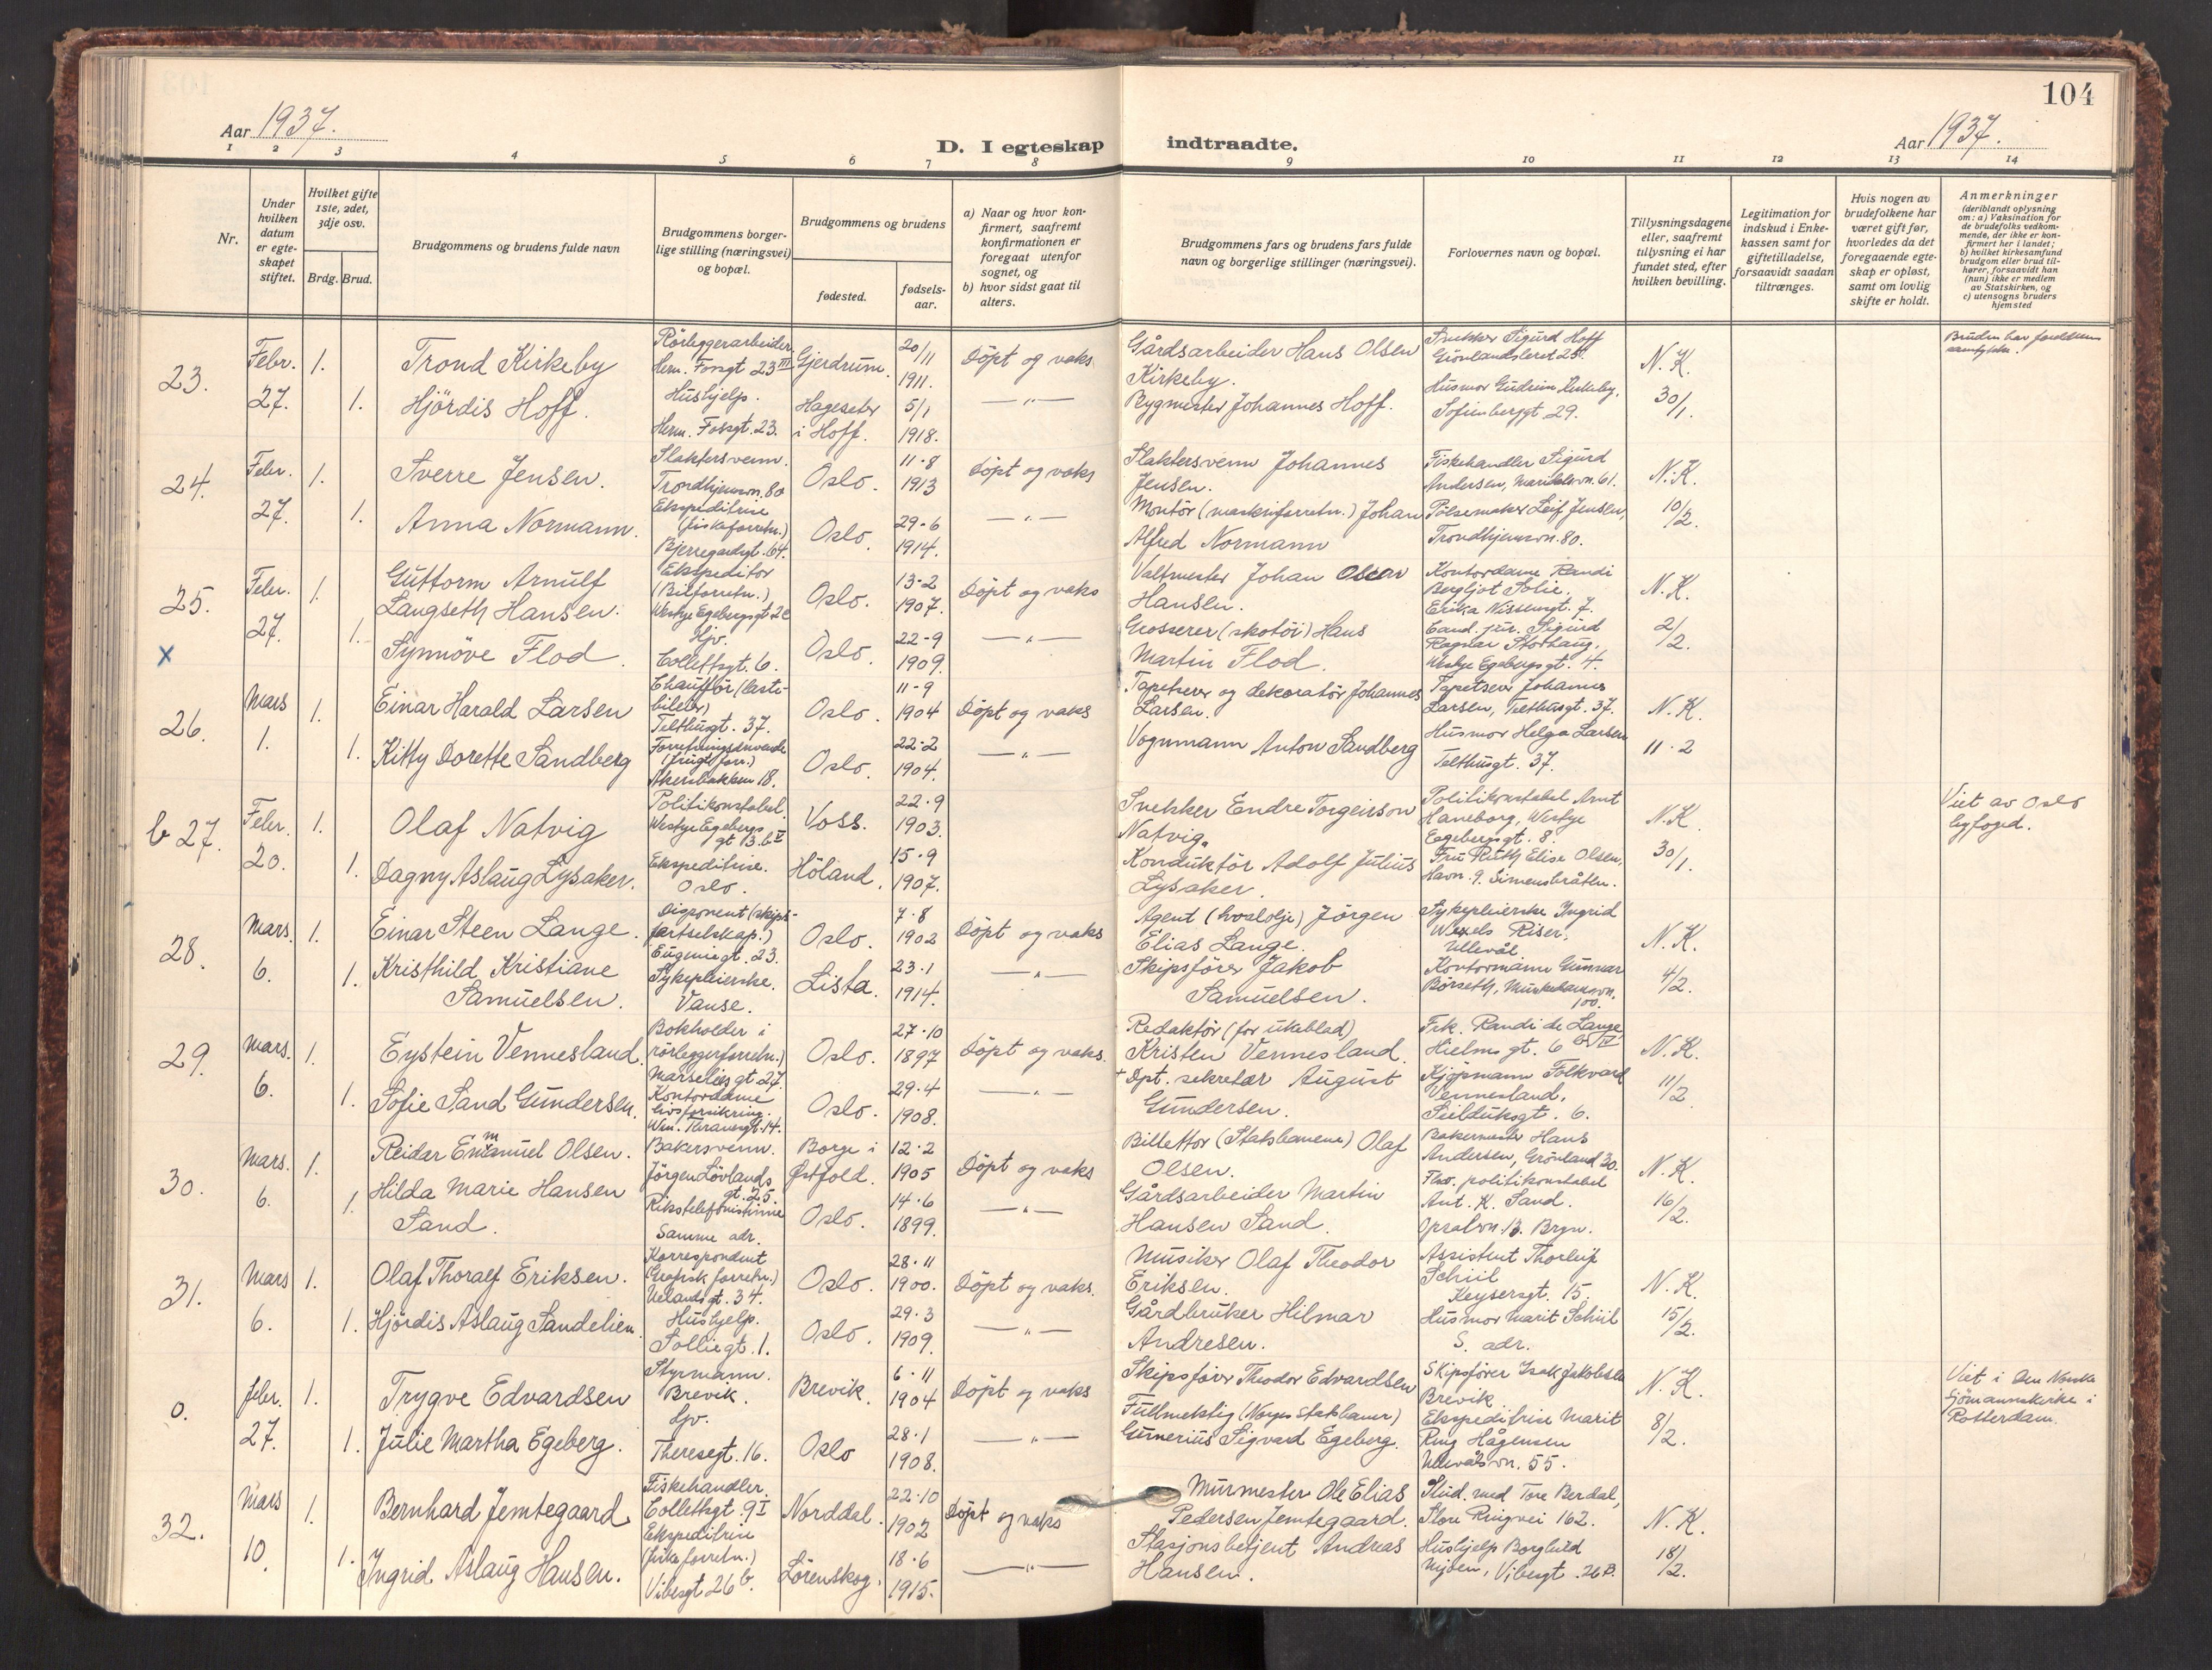 104
Aar 1937.
D. I egteskap indtraadte.
Aar 1937.
1 2 3 4 5 6 7 8 9 10 11 12 13 14
Nr.
Under hvilken datum er egteskapet stiftet.
Hvilket gifte 1ste, 2det, 3dje osv.
Brdg. Brud.
Brudgommens og brudens fulde navn
Brudgommens borgerlige stilling (næringsvei) og bopæl.
Brudgommens og brudens
fødested.
fødselsaar.
a) Naar og hvor konfirmert, saafremt konfirmationen er foregaat utenfor sognet, og
b) hvor sidst gaat til alters.
Brudgommens fars og brudens fars fulde navn og borgerlige stillinger (næringsvei).
Forlovernes navn og bopæl.
Tillysningsdagene eller, saafremt tillysning ei har fundet sted, efter hvilken bevilling.
Legitimation for indskud i Enkekassen samt for giftetilladelse, forsaavidt saadan tiltrænges.
Hvis nogen av brudefolkene har været gift før, hvorledes da det foregaaende egteskap er opløst, samt om lovlig skifte er holdt.
Anmerkninger
(deriblandt oplysning om: a) Vaksination for de brudefolks vedkommende, der ikke er konfirmert her i landet; b) hvilket kirkesamfund brudgom eller brud tilhører, forsaavidt han (hun) ikke er medlem av Statskirken, og c) utensogns bruders hjemsted
23. Febr. 27. 1. Trond Kirkeby
Rörleggerarbeider. Herm. Fossgt 23 III Gjerdrum. 20/11 1911. Döpt og vaks.
Gårdsarbeider Hans Olsen Kirkeby.
Snekker Sigurd Hoff Grönlandsleret 25. N.K. 30/1.
Bruden har
1. Hjördis Hoff.
Hushjelp. Herm. Fossgt. 23. Hageseter i Hoff. 5/1 1918. — " —
Bygmester Johannes Hoff.
Husmor Gudrun Kirkeby, Sofienberggt 29.
24. Febr. 27. 1. Sverre Jensen.
Slaktersvenn. Trondhjemsvn. 80 Oslo. 11-8 1913 Döpt og vaks
Slaktersvenn Johannes Jensen.
Fiskehandler Sigurd Andersen, Maridalsvn. 61. N.K. 10/2.
1. Anna Normann.
Ekspeditrise (fiskeforretn.) Bjerregardsgt. 64. Oslo. 29-6 1914. — " —
Montör (maskinforretn.) Johan Alfred Normann
Pölsemaker Leif Jensen, Trondhjemsvn. 80.
25. Febr. 27. 1. Guttorm Arnulf Langseth Hansen.
Ekspeditor (Bilforretn.) Westye Egebergsgt 2c Oslo. 13-2 1907. Döpt og vaks
Valtmester Johan Oscar Hansen.
Kontordame Randi Bergljot Solie, Erika Nissensgt. 7. N.K. 2/2.
x
1. Synnöve Flod.
Hjv. Collettsgt. 6. Oslo. 22-9 1909. — " —
Grosserer (skotöi) Hans Martin Flod.
Cand. jur. Sigurd Ragnar Storhaug, Westye Egebergsgt. 4.
26. Mars 1. 1. Einar Harald Larsen
Chaufför (lastebileier) Telthusgt. 37. Oslo. 11-9 1904 Döpt og vaks
Tapetserer og dekoratör Johannes Larsen.
Tapetserer Johannes Larsen, Telthusgt. 37. N.K. 11-2
1. Kitty Dorette Sandberg
Akersbakken 18. Oslo. 22-2 1904. — " —
Vognmann Anton Sandberg
Husmor Helga Larsen Telthusgt. 37.
b 27. Febr. 20. 1. Olaf Natvig
Politikonstabel. Westye Egebergs gt 13. b V Voss. 22-9 1903.
Snekker Endre Torgeirson Natvig.
Politikonstabel Arnt Haneborg, Westye Egebergsgt. 8. N.K. 30/1.
Viet av Oslo byfoged.
1. Dagny Aslaug Lysaker.
Ekspeditrise. Oslo. Höland. 15-9 1907.
Konduktör Adolf Julius Lysaker.
Fru Ruth Elise Olsen, Havn. 9. Simensbråten.
28. Mars. 6. 1. Einar Steen Lange.
Disponent (skipsfartselskap.) Eugeniegt. 23. Oslo. 7-8 1902 Döpt og vaks
Agent (hvalolje) Jörgen Elias Lange.
Sykepleierske Ingrid Wexels Riser, Ullevål N.K. 4/2.
1. Kristhild Kristiane Samuelsen.
Sykepleierske. Vanse. Lista. 23-1 1914. — " —
Skipsförer Jakob Samuelsen.
Kontormann Gunnar Börseth, Munkedamsvn. 100.
29. Mars. 6. 1. Eystein Vennesland.
Bokholder i rörleggerforretn.) Marseliesgt 27. Oslo. 27-10 1897 Döpt og vaks.
Redaktör (for ukeblad) Kristen Vennesland.
Frk. Randi de Lange Hielms gt. 6 IV N.K. 11/2
1. Sofie Sand Gundersen.
Kontordame livsforsikring. Wm. Thranesgt. 14. Oslo. 29-4 1908. — " —
+ Dpt. sekretær August Gundersen.
Kjöpmann Folkvard Vennesland, Seilduksgt. 6.
30. Mars. 6. 1. Reidar Emanuel Olsen.
Bakersvenn. Jörgen Lövlands gt. 25. Borge i Østfold. 12-2 1905 Döpt og vaks
Billettör (Statsbanene) Olaf Olsen.
Bakermester Hans Andersen, Grönland 30. N.K. 16/2.
1. Hilda Marie Hansen Sand.
Rikstelefonistinne Samme adr. Oslo. 14-6 1899. — " —
Gårdsarbeider Martin Hansen Sand.
politikonstabel Ant. K. Sand. Opsalvn. 13. Bryn.
31. Mars 6. 1. Olaf Thoralf Eriksen.
Korrespondent (Grafisk forretn.) Uelandsgt. 34. Oslo. 28-11 1900. Döpt og vaks.
Musiker Olaf Theodor Eriksen.
Assistent Thorleif Schiil Keysersgt. 15. N.K. 15/2.
1. Hjördis Aslaug Sandelien
Hushjelp. Solliegt. 1. Oslo. 29-3 1909. — " —
Gårdbruker Hilmar Andresen.
Husmor Marit Schiil S. adr.
0. Febr. 27. 1. Trygve Edvardsen
Styrmann. Brevik. Brevik. 6-11 1904 Döpt og vaks
Skipsförer Theodor Edvardsen
Skipsförer Isak Jakobsen Brevik N.K. 8/2.
Viet i Den Norske Sjömannskirke i Rotterdam.
1. Julie Martha Egeberg.
Hjv. Theresegt. 16. Oslo 28-1 1908. — " —
Fullmektig (Norges Statsbaner) Gunerius Sigvard Egeberg.
Ekspeditrise Marit Ring Hågensen Ullevålsvn. 55.
32. Mars 10. 1. Bernhard Jemtegaard.
Fiskehandler. Collettsgt. 9 I Norddal. 22-10 1902 Döpt og vaks
Murmester Ole Elias Pedersen Jemtegaard.
Stud. med Tore Berdal, Store Ringvei 162. N.K. 18/2.
1. Ingrid Aslaug Hansen.
Ekspeditrise (fiskeforretn.) Vibesgt 26 b. Lörenskog. 18-6 1915. — " —
Stasjonsbetjent Andreas Hansen.
Hushjelp Borghild Myren, Vibesgt. 26 B.